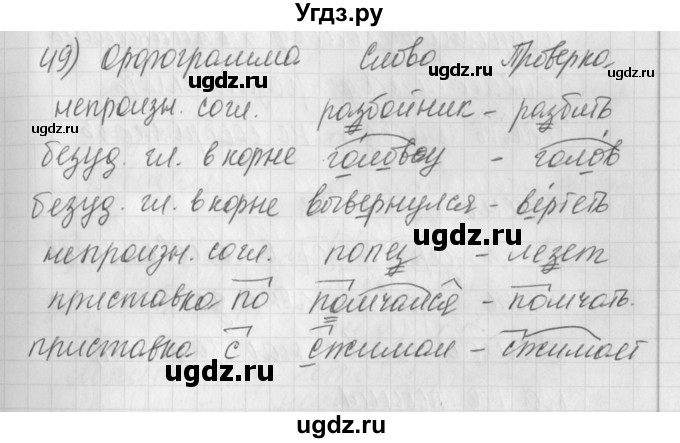 Угдз.ру
49) Орфограмма Слово Проверка
ugdz.ru ugdz.ru ugdz.ru
непроизн. согл. разбойник - разбить
ugdz.ru ugdz.ru
безуд. гл. в корне голову - голов
ugdz.ru
безуд. гл. в корне вывернулся - вертеть
ugdz.ru
непроизн. согл. полез - лезет
ugdz.ru ugdz.ru
приставка по помчался - помчать.
ugdz.ru
приставка с сжимал - сжимает
ugdz.ru ugdz.ru
ugdz.ru